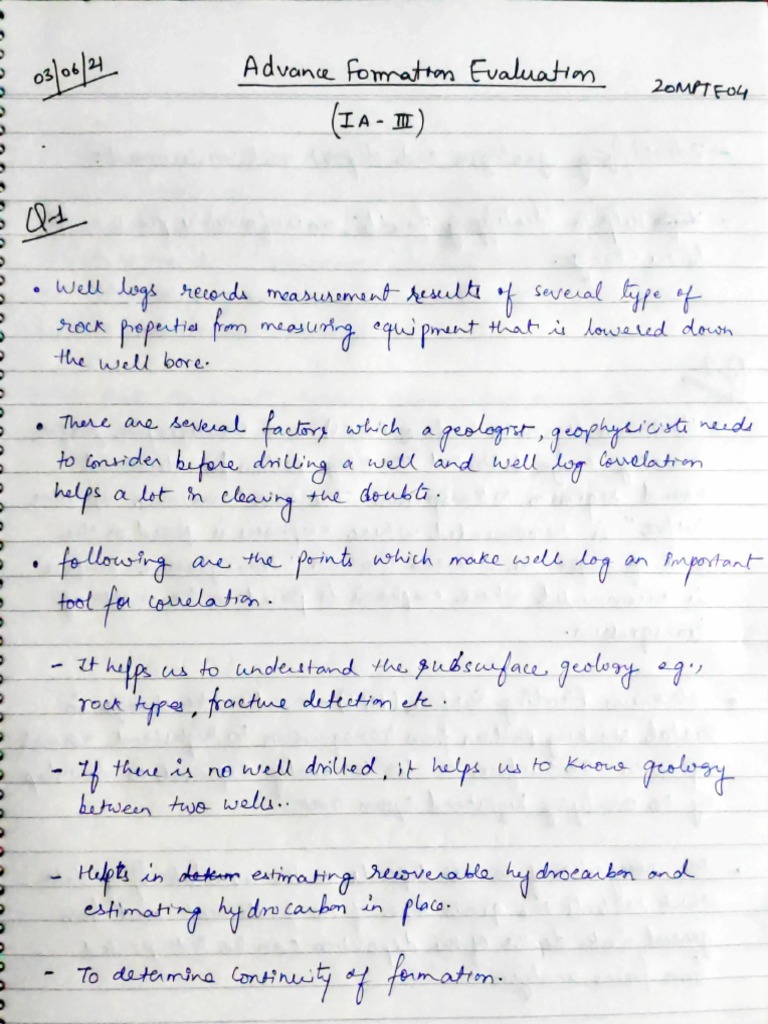 03/06/21
Advance Formation Evaluation
20MPTE04
(IA - III)
Q-1
• Well logs records measurement results of several type of
rock properties from measuring equipment that is lowered down
the well bore.
• There are several factors which a geologist, geophysicists needs
to consider before drilling a well and well log correlation
helps a lot in clearing the doubts.
• following are the points which make well log an important
tool for correlation.
- It helps us to understand the subsurface geology eg.,
rock types, fracture detection etc.
- If there is no well drilled, it helps us to know geology
between two wells..
- Helps in estimating recoverable hydrocarbon and
estimating hydrocarbon in place.
- To determine continuity of formation.